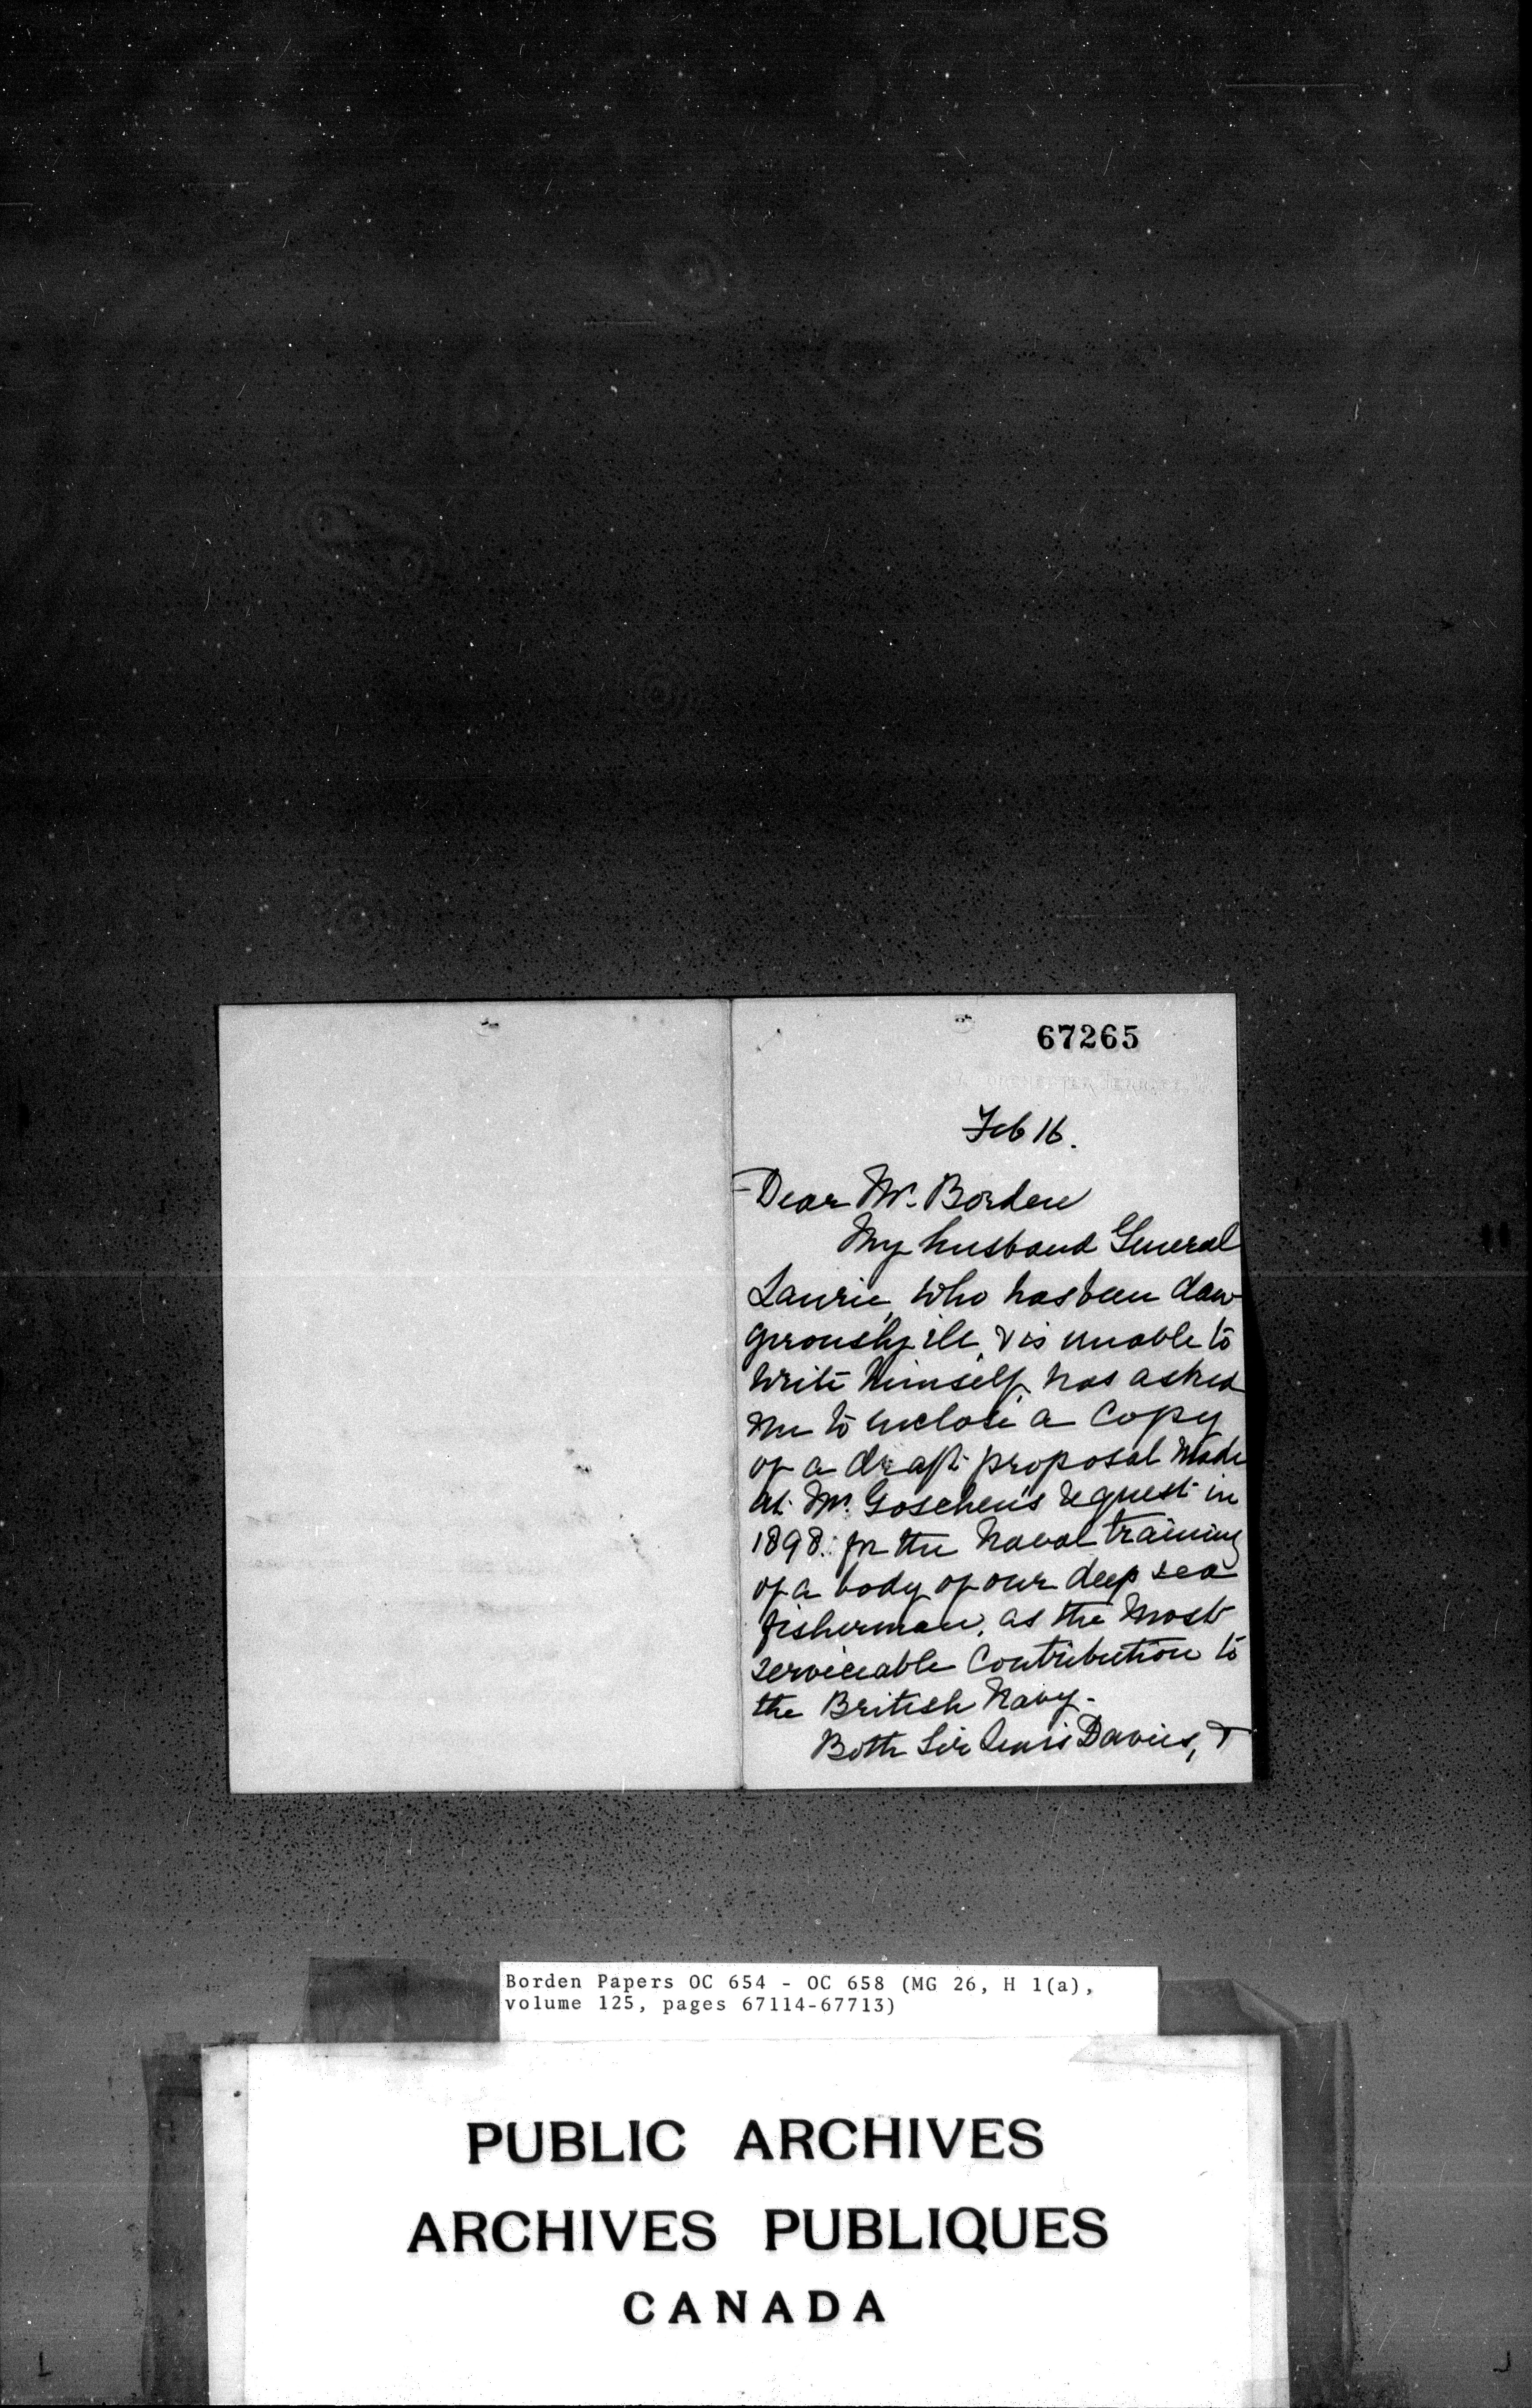 67265
Feb 16.
Dear Mr. Borden
My husband General
Laurie, who has been dan
gerously ill, & is unable to
write himself, has asked
me to enclose a Copy
of a draft proposal made
at Mr. Goschen's request in
1898. for the Naval training
of a body of our deep sea
fisherman, as the most
serviceable Contribution to
the British Navy.
Both Sir Louis Davies, &
Borden Papers OC 654 - OC 658 (MG 26, H 1(a),
volume 125, pages 67114-67713)
PUBLIC ARCHIVES
ARCHIVES PUBLIQUES
CANADA